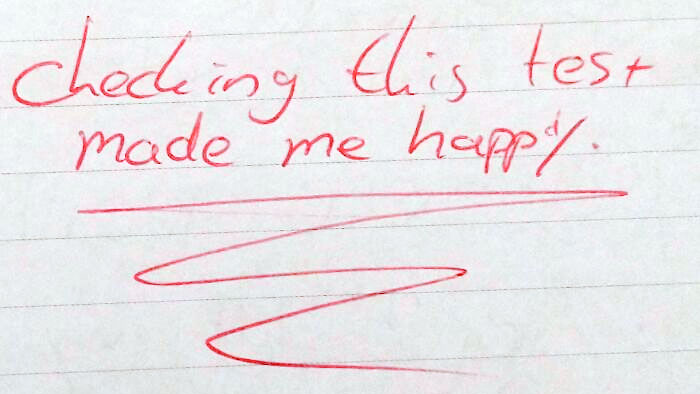 checking this test
made me happy.